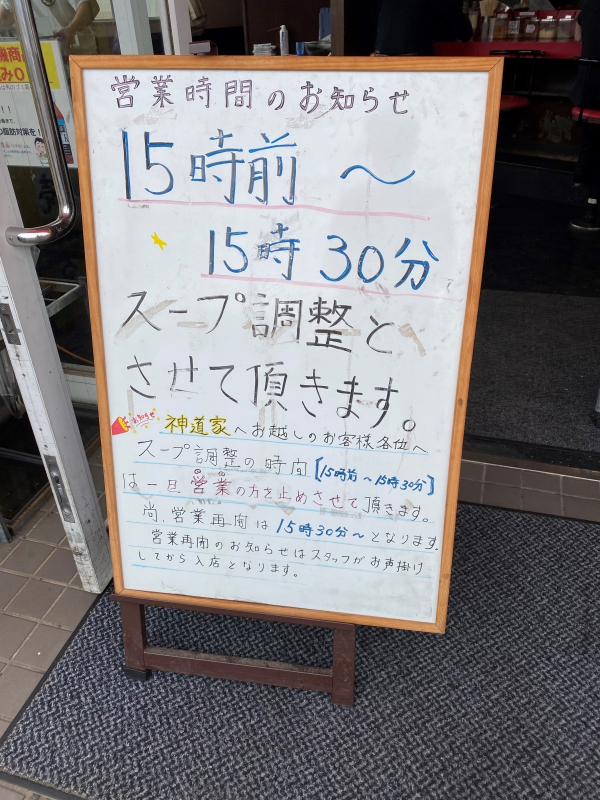 営業時間のお知らせ
15時前 〜
15時 30分
スープ調整と
させて頂きます。
お知らせ
神道家へお越しのお客様各位へ
スープ調整の時間【15時前〜15時30分】
は一旦営業の方を止めさせて頂きます。
尚、営業再開は15時30分〜となります。
営業再開のお知らせはスタッフがお声掛け
してから入店となります。